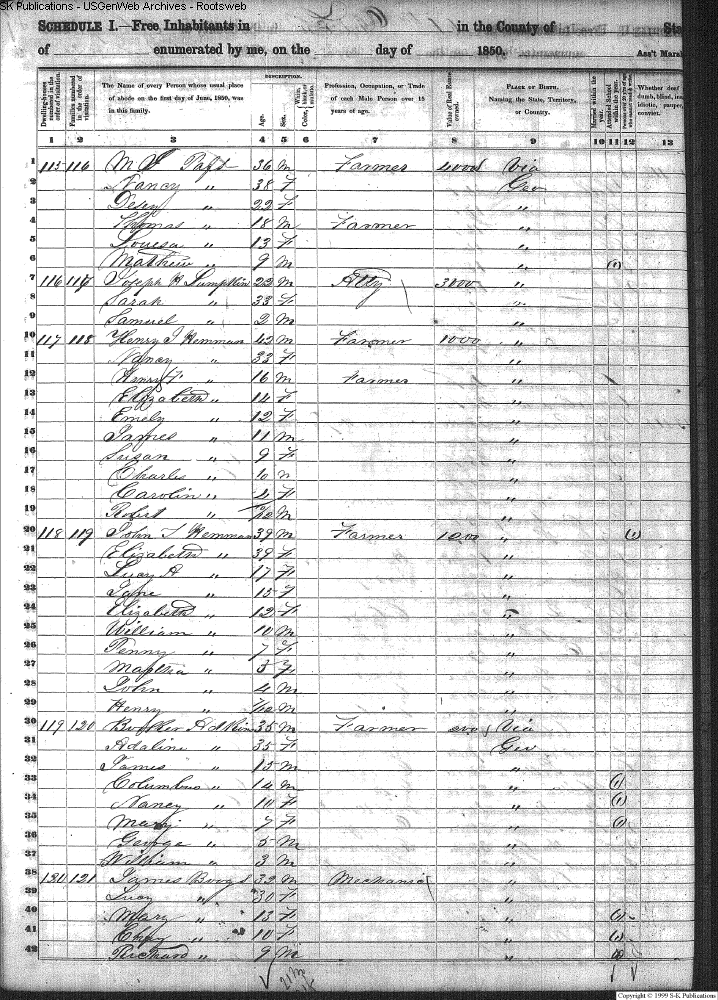 SK Publications - USGenWeb Archives - Rootsweb
SCHEDULE I.—Free Inhabitants in in the County of Sta
of enumerated by me, on the day of 1850. Ass't Marsh
Dwelling-houses numbered in the order of visitation.
Families numbered in the order of visitation.
The Name of every Person whose usual place of abode on the first day of June, 1850, was in this family.
DESCRIPTION.
Age.
Sex.
Color, White, black, or mulatto.
Profession, Occupation, or Trade of each Male Person over 15 years of age.
Value of Real Estate owned.
PLACE OF BIRTH. Naming the State, Territory, or Country.
Married within the year.
Attended School within the year.
Whether deaf dumb, blind, ins idiotic, pauper, convict.
1 2 3 4 5 6 7 8 9 10 11 12 13
1 115 116 36 m Farmer 4000 Via
2 Nancy " 38 F Geo
3 22 F "
4 Thomas " 18 m Farmer "
5 Louesa " 13 F "
6 Mathew " 9 m " (1)
7 116 Joseph H Lumpkin 22 m Atty 3000 "
8 Sarah " 33 F "
9 Samuel " 2 m "
10 117 118 Henry 42 m Farmer 1000 "
11 Nancy " 33 F "
12 Henry F " 16 m Farmer "
13 Elizabeth " 14 F "
14 Emely " 12 F "
15 James " 11 m "
16 Susan " 9 F "
17 Charles " "
18 Carolin " 4 F "
19 Robert " m "
20 118 119 John 39 m Farmer 1200 " (1)
21 Elizabeth " 39 F "
22 Lucy A " 17 F "
23 Jane " 15 F "
24 Elizabeth " 12 F "
25 William " 10 m "
26 Penny " 7 F "
27 Martha " "
28 John " 4 m "
29 Henry " m "
30 119 120 Adkins 35 m Farmer Via
31 Adaline " 35 F Geo
32 James " 15 m "
33 Columbus " 14 m " (1)
34 Nancy " 10 F " (1)
35 Mary " 7 F " (1)
36 George " 5 m "
37 William " 3 m "
38 121 James 32 m Mechanic "
39 Lucy " 30 F "
40 Mary " 13 F " (1)
41 " 10 F " (1)
42 Richard " 9 m "
Copyright © 1999 S-K Publications